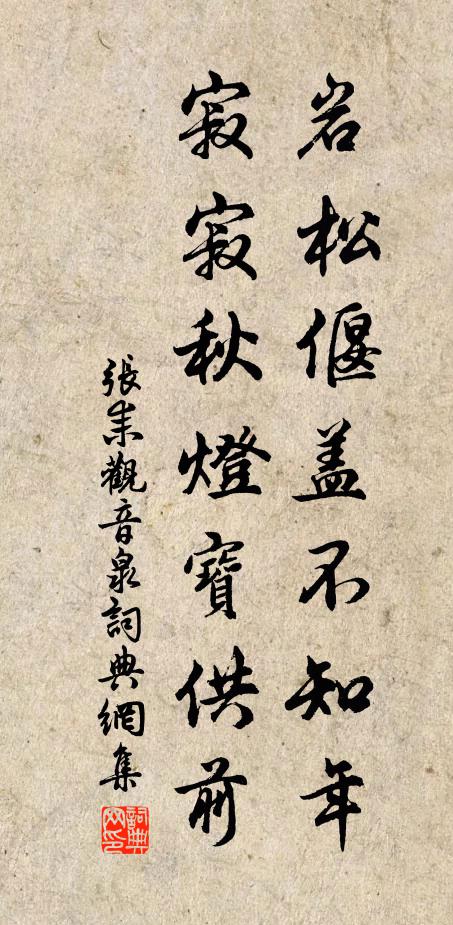 岩松偃盖不知年
寂寂秋燈寶供前
張耒觀音泉詞典網集
詞典網印